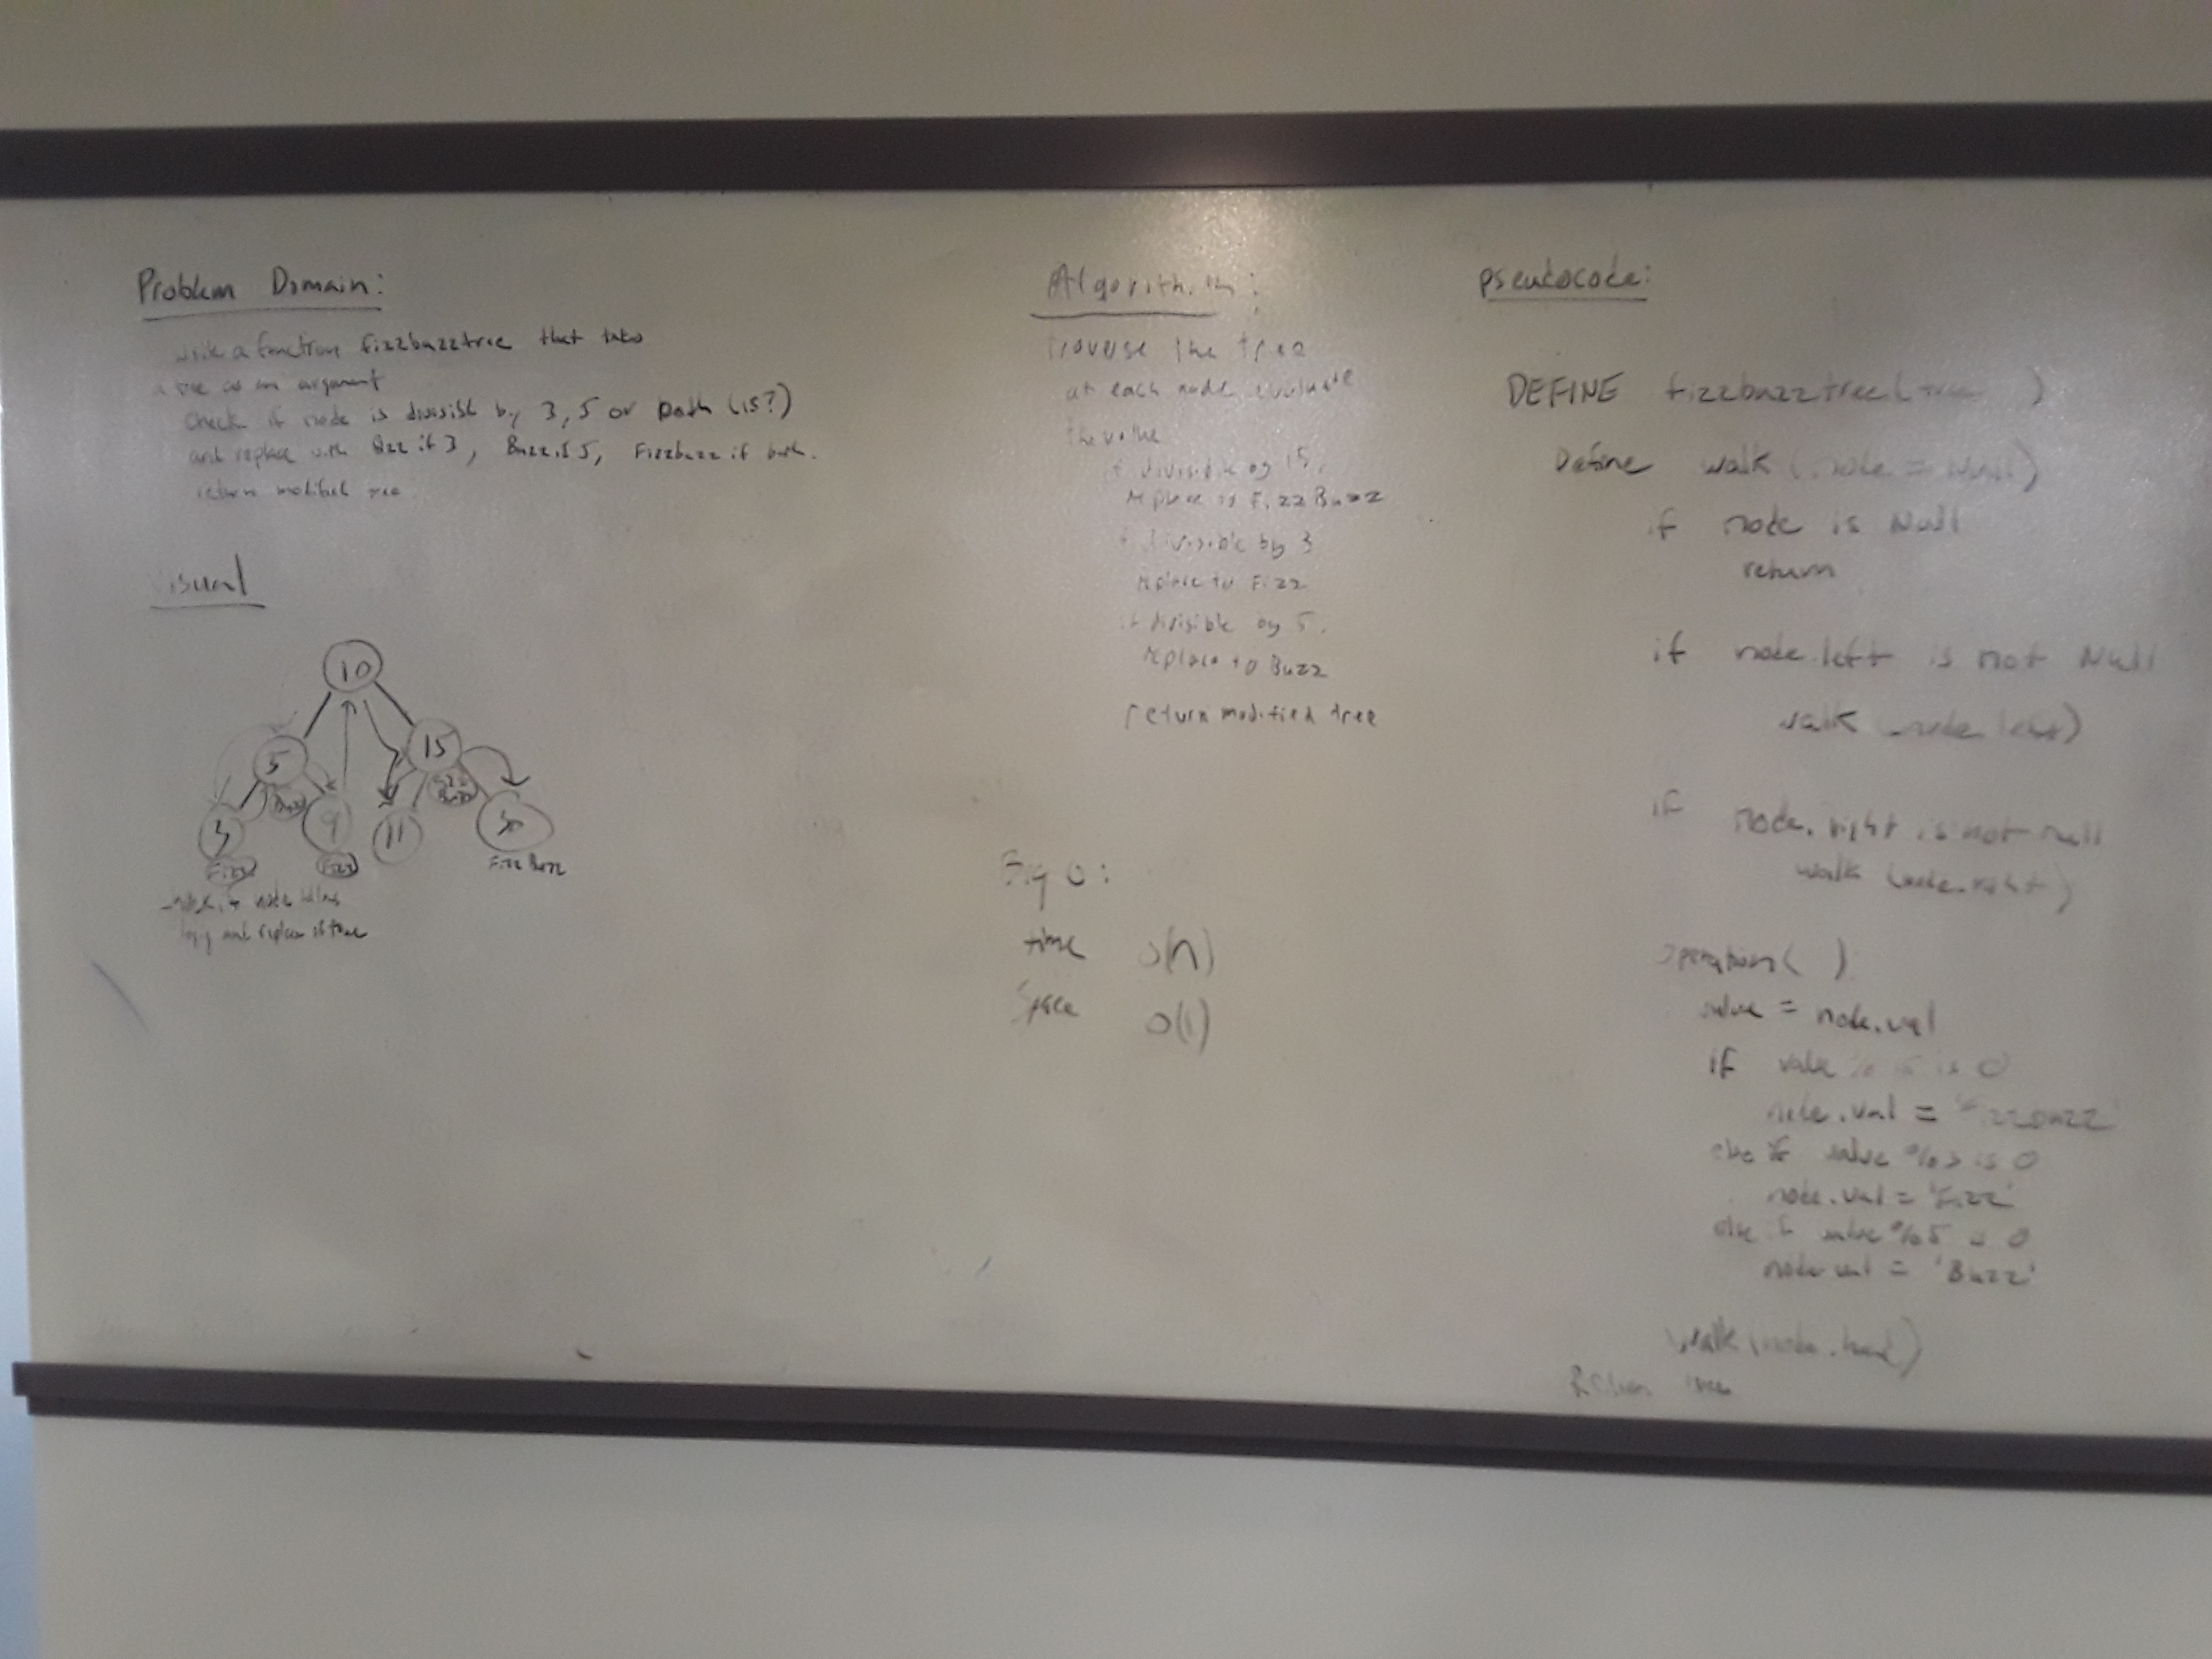 Problem Domain:
write a function fizzbuzztree that takes
a tree as an argument
check if node is divisibl by 3, 5 or both (15?)
and replace with fizz if 3, Buzz if 5, Fizzbuzz if both.
return modified tree
Visual
10
5
15
Buzz
Fizz
Buzz
3
9
11
30
Fizz
Fizz
Fizz Buzz
node
and replace if true
Algorithm:
Traverse the tree
at each node evaluate
the value
if divisible by 15,
replace to FizzBuzz
if divisible by 3
replace to Fizz
if divisible by 5,
replace to Buzz
return modified tree
Big O:
time O(n)
Space O(1)
pseudocode:
DEFINE fizzbuzztree(tree )
Define walk (node = Null)
if node is Null
return
if node.left is not Null
walk (node.left)
if node.right is not null
walk (node.right)
operation( )
value = node.val
if value % 15 is 0
node.val = 'Fizzbuzz'
else if value % 3 is 0
node.val = 'Fizz'
else if value % 5 is 0
node.val = 'Buzz'
walk (node.head)
Return tree